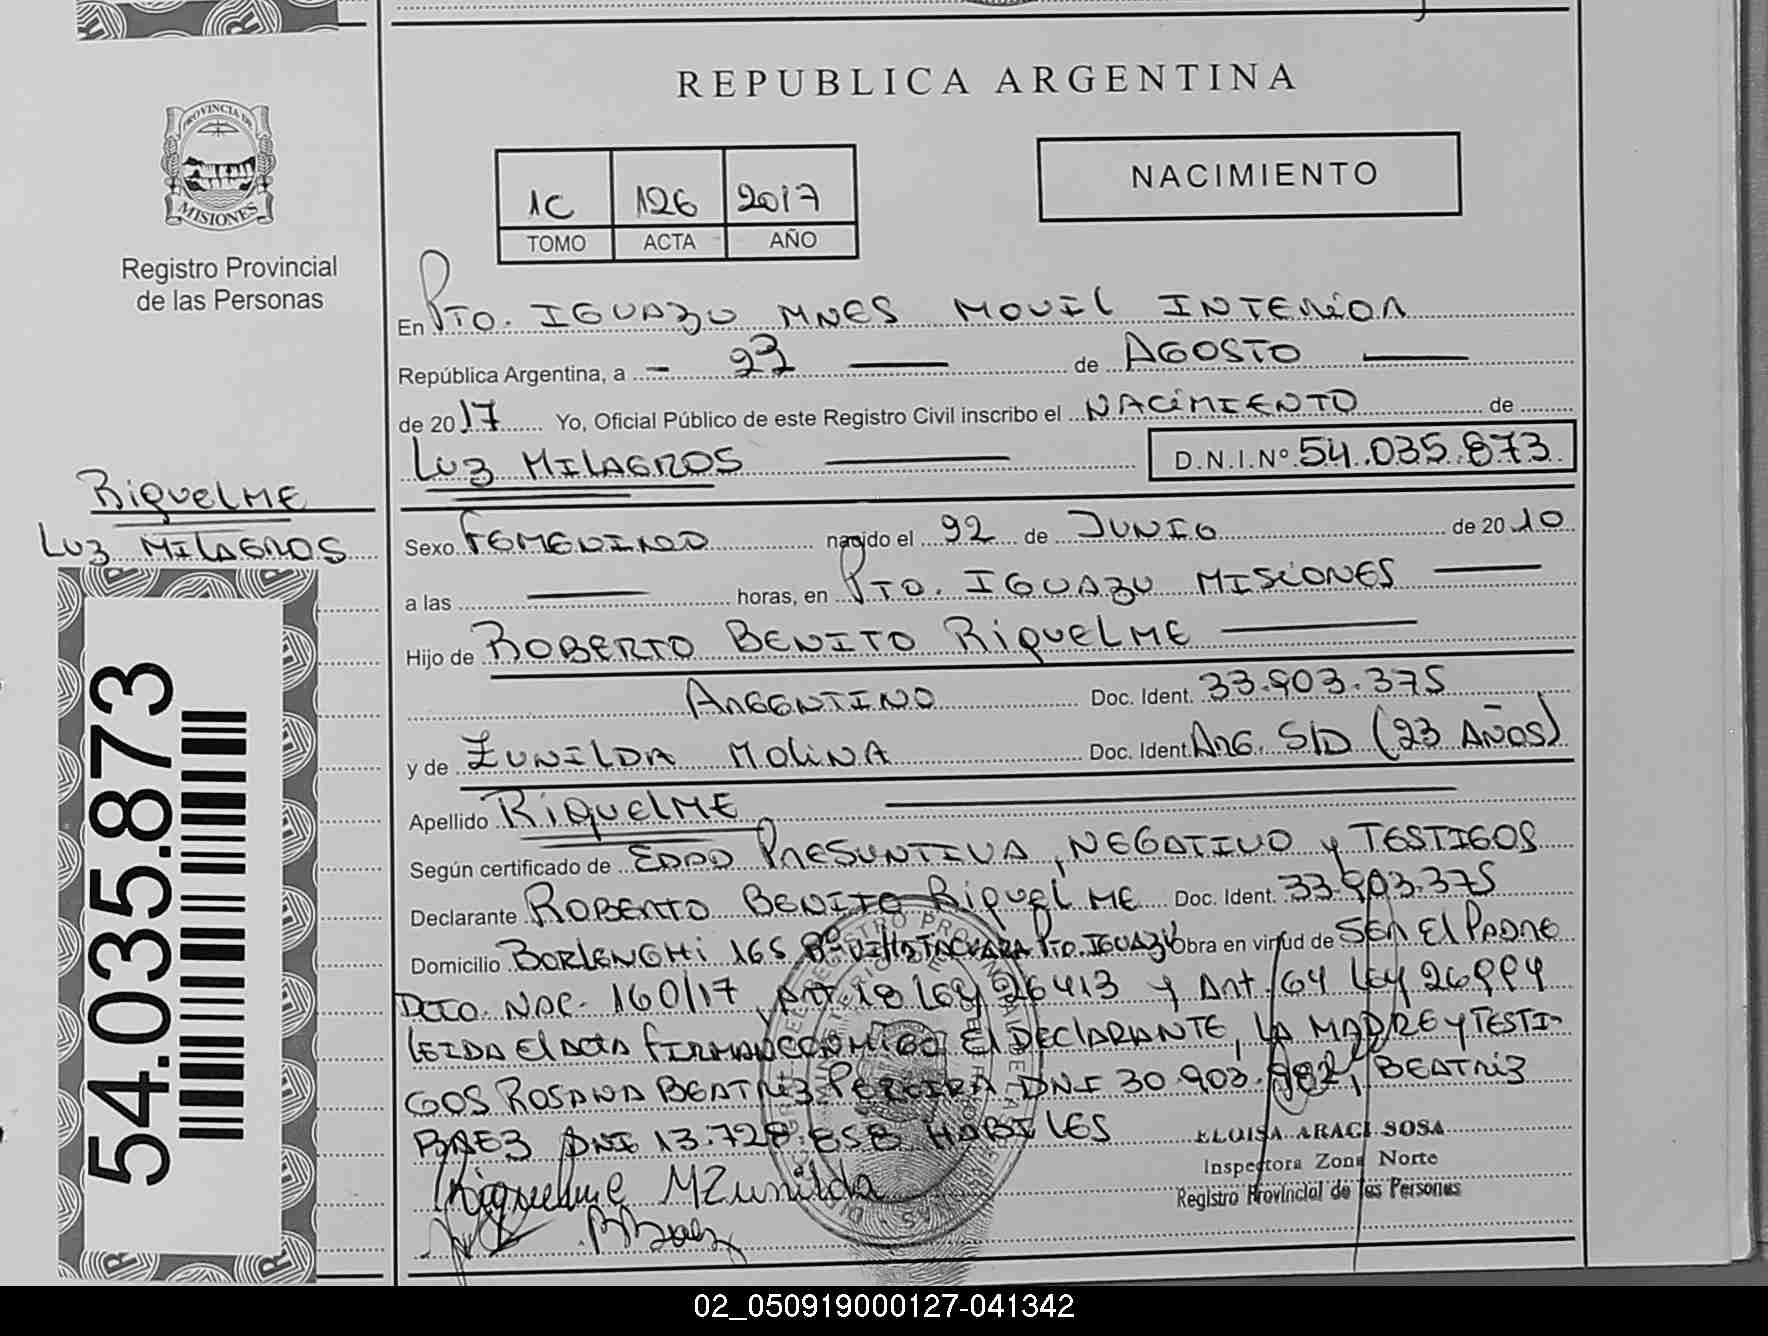 REPUBLICA ARGENTINA
PROVINCIA DE
MISIONES
Registro Provincial
de las Personas
1C 126 2017
TOMO ACTA AÑO
NACIMIENTO
En PTO. IGUAZU MNES MOVIL INTERIOR
República Argentina, a - 23 de AGOSTO
de 2017 Yo, Oficial Público de este Registro Civil inscribo el NACIMIENTO de
LUZ MILAGROS D.N.I.Nº 54.035.873
RIQUELME
LUZ MILAGROS
Sexo FEMENINO nacido el 22 de JUNIO de 2010
a las horas, en PTO. IGUAZU MISIONES
Hijo de ROBERTO BENITO RIQUELME
ARGENTINO Doc. Ident. 33.903.375
y de ZUNILDA MOLINA Doc. Ident. ARG. S/D (23 AÑOS)
Apellido RIQUELME
Según certificado de EDAD PRESUNTIVA, NEGATIVO y TESTIGOS
Declarante ROBERTO BENITO RIQUELME Doc. Ident. 33.903.375
Domicilio BORLENGHI 165 Bº VILLA TACUARA PTO. IGUAZU Obra en virtud de SER El PADRE
DTO. NAC. 160/17, Art. 18 LEY 26413 y Art. 64 LEY 26994
LEIDA El ACTA FIRMAN CONMIGO El DEClARANTE, LA MADRE y TESTI-
GOS ROSANA BEATRIZ PEREIRA DNI 30.903.982, BEATRIZ
BAEZ DNI 13.728.658 HABILES
Riquelme MZunilda
BBaez
ELOISA ARACI SOSA
Inspectora Zona Norte
Registro Provincial de las Personas
54.035.873
02_050919000127-041342